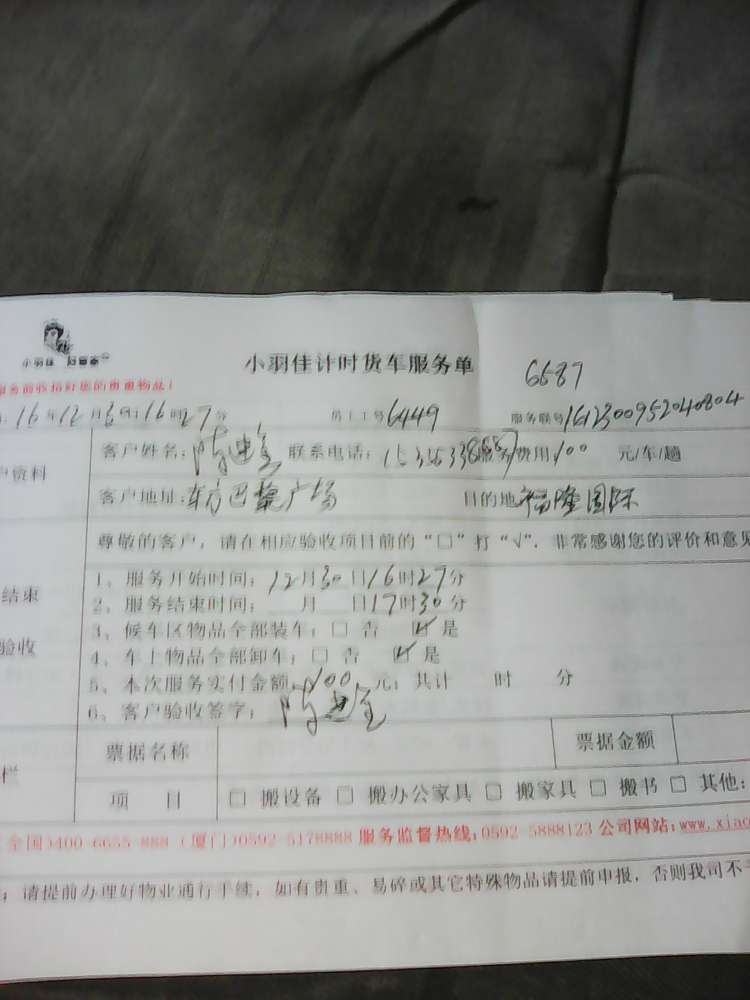 小羽佳
小羽佳计时货车服务单
6687
服务前收拾好您的贵重物品！
16年12月30日16时27分 员工工号6449 服务联号1612300952040804
户资料
客户姓名： 联系电话： 服务费用100元/车/趟
客户地址：东方巴黎广场 目的地 福隆国际
尊敬的客户，请在相应验收项目前的“□”打“√”．非常感谢您的评价和意见
结束
验收
1、服务开始时间：12月30日16时27分
2、服务结束时间： 月 日17时30分
3、候车区物品全部装车：□ 否 ☑ 是
4、车上物品全部卸车：□ 否 ☑ 是
5、本次服务实付金额：100元；共计 时 分
6、客户验收签字：
栏
票据名称 票据金额
项 目 □ 搬设备 □ 搬办公家具 □ 搬家具 □ 搬书 □ 其他：
全国)400-6655-888 (厦门)0592-5178888 服务监督热线：0592-5888123 公司网站：www.xiao
：请提前办理好物业通行手续，如有贵重、易碎或其它特殊物品请提前申报，否则我司不